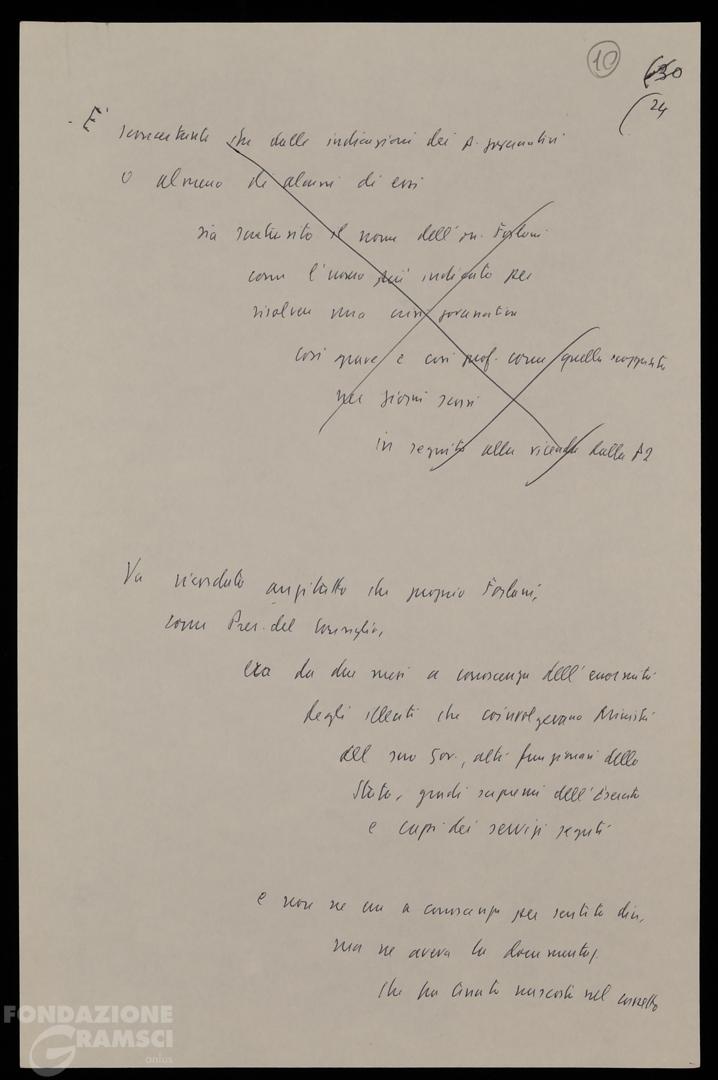 10
30
24
- E' sconcertante che dalle indicazioni dei P. governativi
o almeno da alcuni di essi
sia scaturito il nome dell'on. Forlani
come l'uomo più indicato per
risolvere una crisi governativa
così grave e così prof. come quella scoppiata
nei giorni scorsi
in seguito alla vicenda della P2
Va ricordato anzitutto che proprio Forlani,
come Pres. del Consiglio,
era da due mesi a conoscenza dell'enormità
degli illeciti che coinvolgevano Ministri
del suo Gov., alti funzionari dello
Stato, gradi supremi dell'Esercito
e capi dei servizi segreti
e non ne era a conoscenza per sentito dire,
ma ne aveva la documentaz.
che ha tenuto nascosta nel cassetto
FONDAZIONE
GRAMSCI
onlus